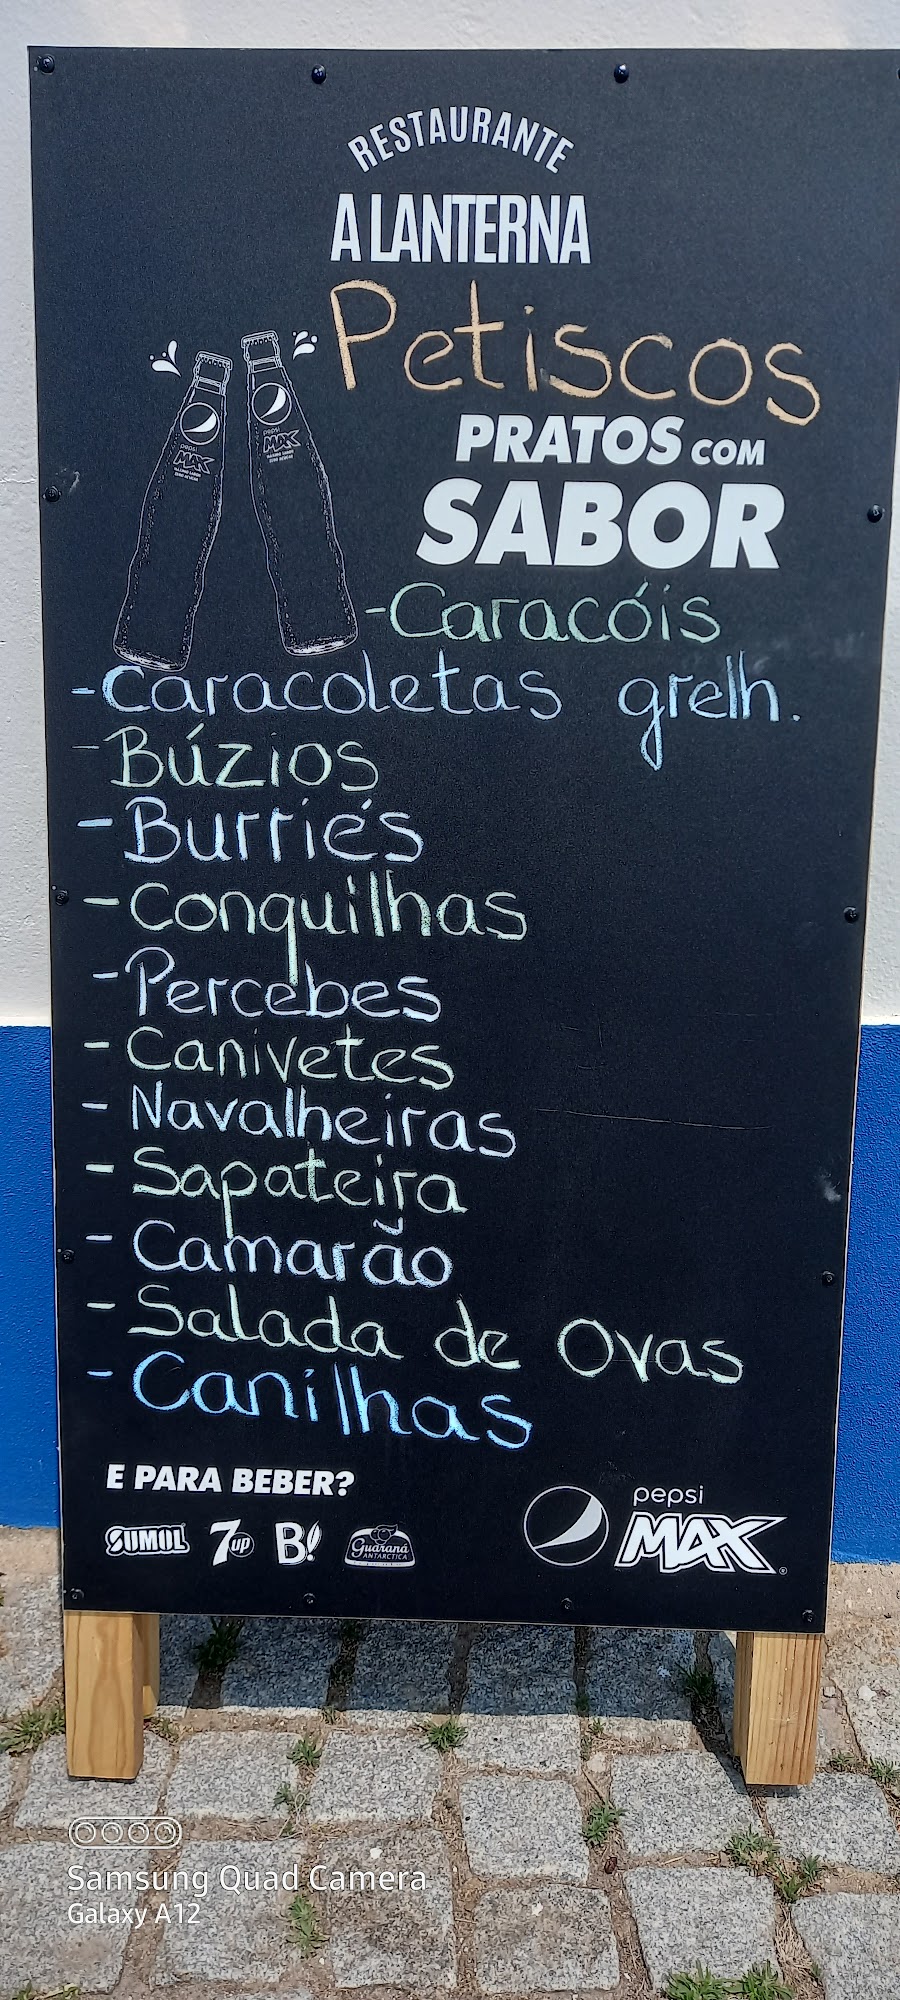 RESTAURANTE
A LANTERNA
Petiscos
PRATOS COM
SABOR
pepsi
MAX
pepsi
MAX
-Caracóis
-Caracoletas grelh.
-Búzios
-Burriés
-Conquilhas
-Percebes
-Canivetes
-Navalheiras
-Sapateira
-Camarão
-Salada de Ovas
-Canilhas
E PARA BEBER?
SUMOL
7up
B!
Guaraná
ANTARCTICA
pepsi
MAX
Samsung Quad Camera
Galaxy A12